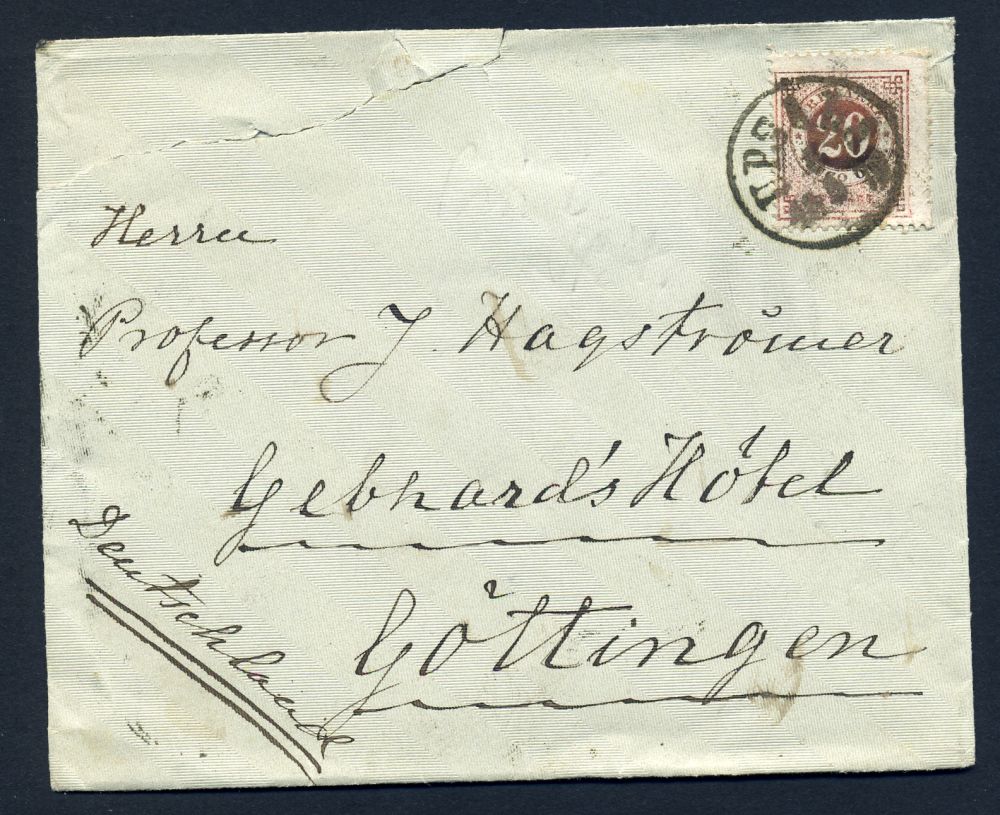 UPSALA
20
Herrn
Professor J. Hagströmer
Gebhard's Hôtel
Göttingen
Deutschland